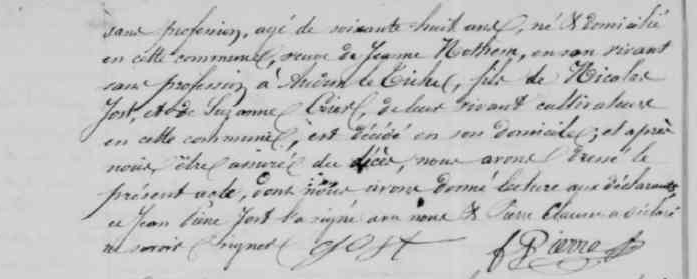 sans profession, agé de soixante huit ans, né & domicilié
en cette commune, veuf de Jeanne Hothem, en son vivant
sans profession à Audun le Tiche, fils de Nicolas
Jost, et de Suzanne, de leur vivant cultivateurs
en cette commune, est décédé en son domicile; et après
nous être assuré du décès, nous avons dressé le
présent acte, dont nous avons donné lecture aux déclarants,
ce Jean Pierre Jost l'a signé avec nous & Pierre a déclaré
ne savoir signer Jost Pierre